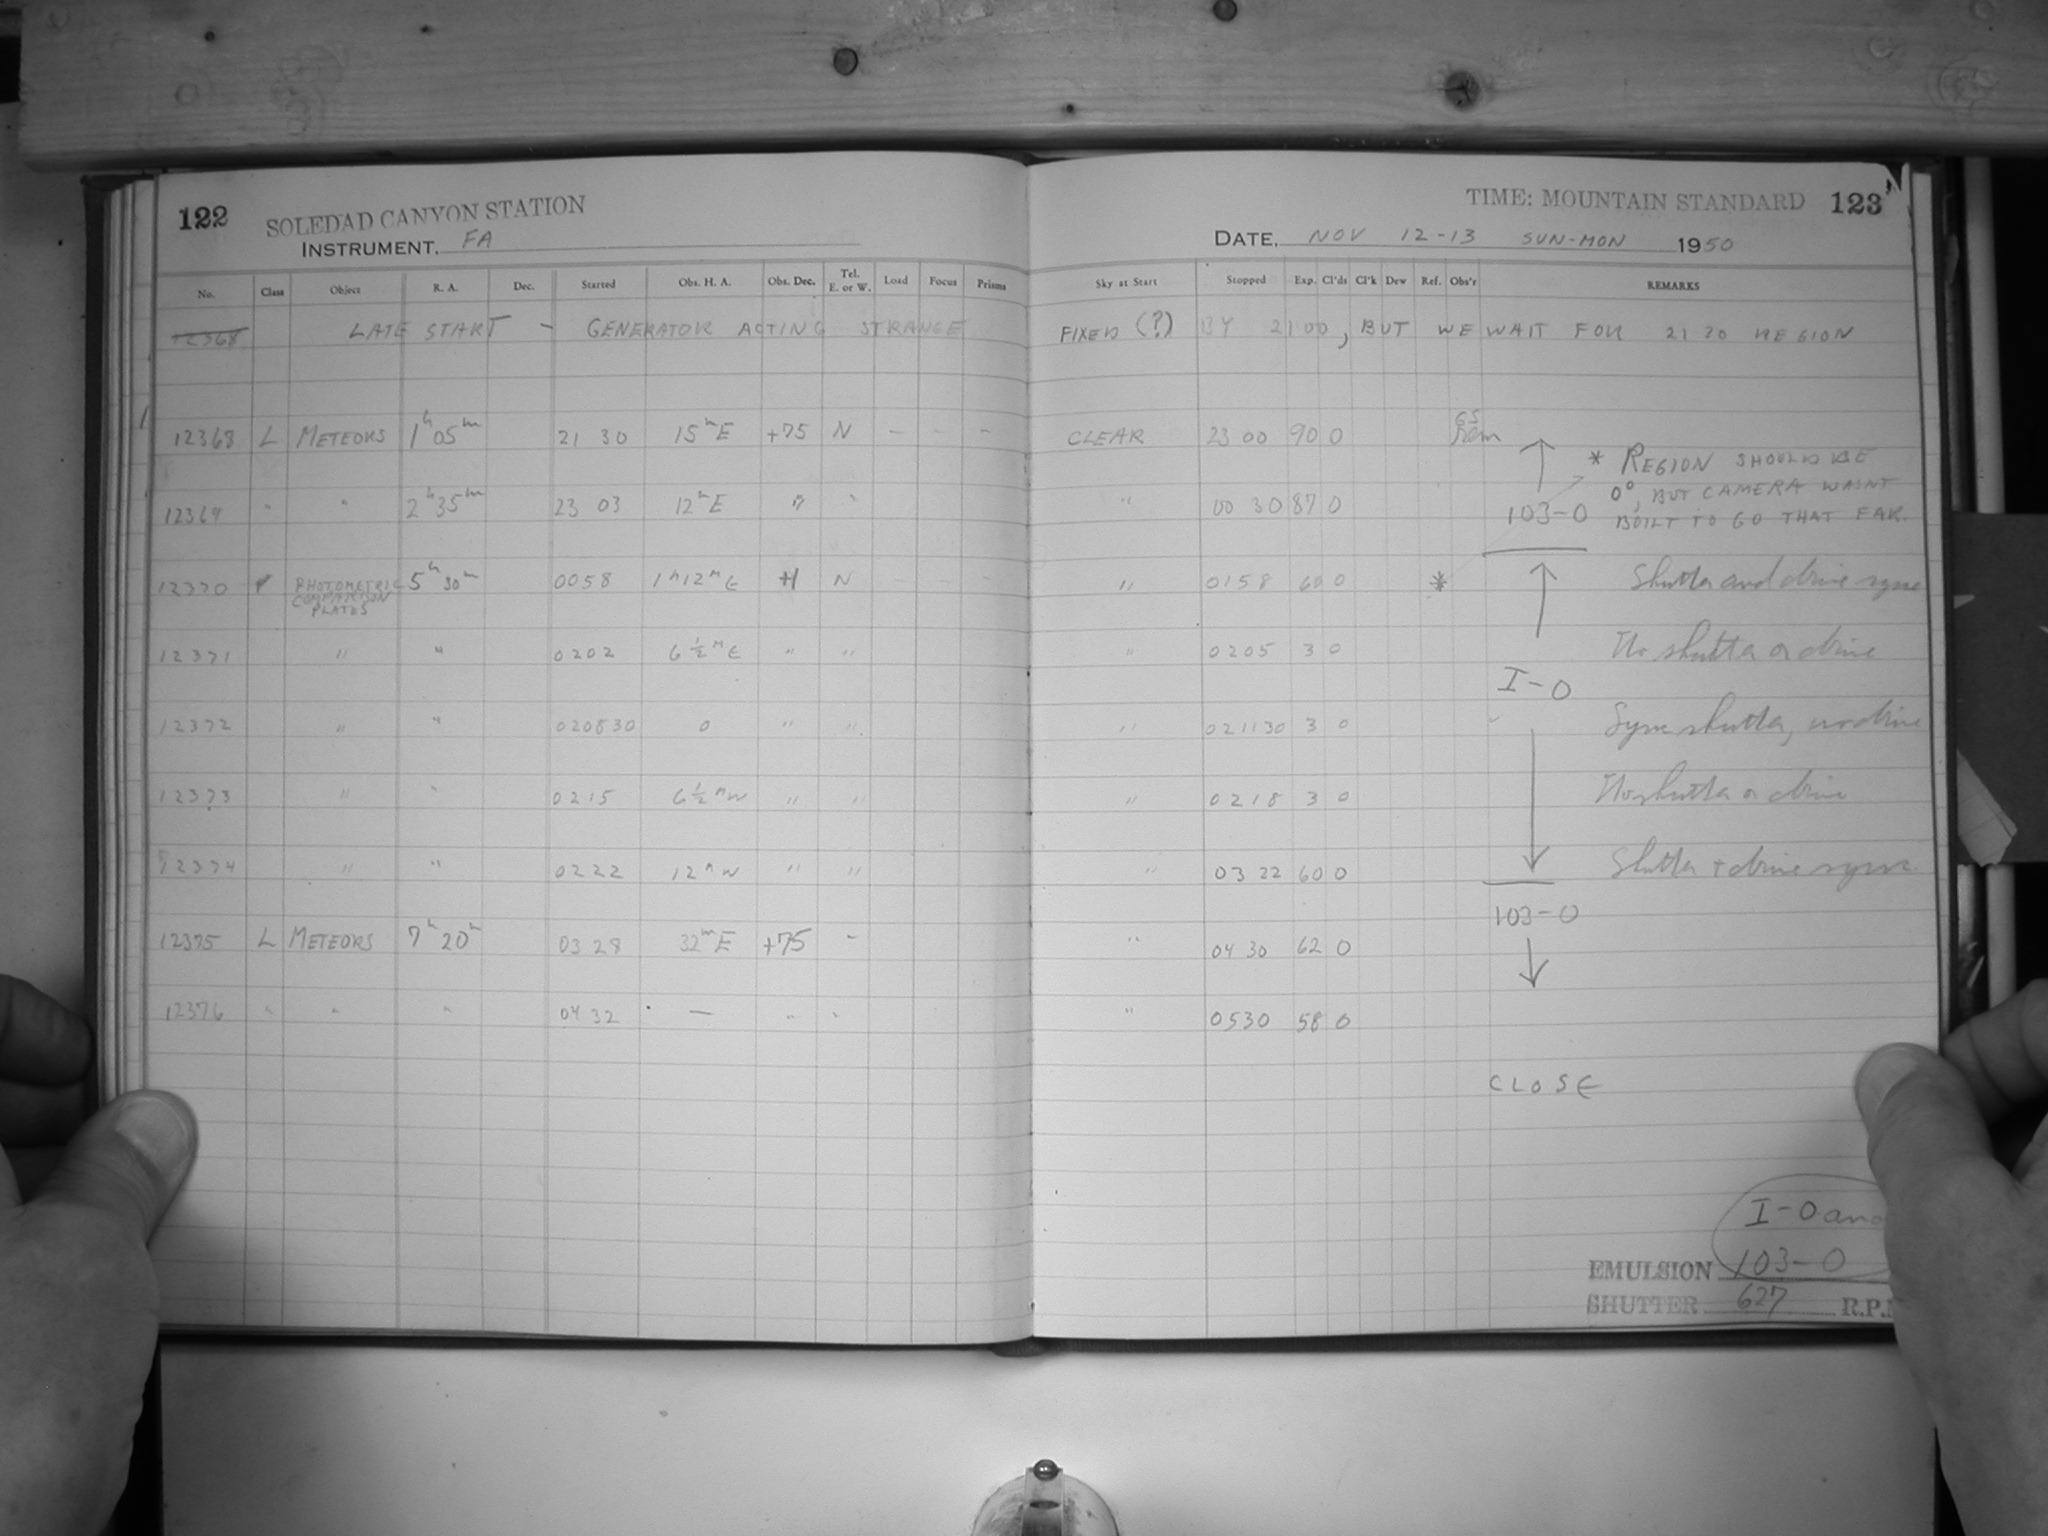 122 SOLEDAD CANYON STATION
INSTRUMENT, FA
TIME: MOUNTAIN STANDARD 123
DATE, NOV 12-13 SUN-MON 1950
No. Class Object R. A. Dec. Started Obs. H. A. Obs. Dec. Tel. E. or W. Load Focus Prisms Sky at Start Stopped Exp. Cl'ds Cl'k Dew Ref. Obs'r REMARKS
12368 LATE START - GENERATOR ACTING STRANGE FIXED (?) BY 2100, BUT WE WAIT FOR 2130 REGION
12368 L METEORS 1h 05m 21 30 15m E +75 N - - - CLEAR 23 00 90 0 GS
12369 " " 2h 35m 23 03 12m E " " " 00 30 87 0
103-0
* REGION SHOULD BE
0°, BUT CAMERA WASN'T
BUILT TO GO THAT FAR.
12370 P PHOTOMETRIC COMPARISON PLATES 5h 30m 0058 1h 12m E +1 N - - - " 0158 60 0 * Shutter and drive sync
12371 " " 0202 6 1/2 m E " " " 0205 3 0 No shutter or drive
I-0
12372 " " 020830 0 " " " 021130 3 0 Sync shutter, no drive
12373 " " 0215 6 1/2 m W " " " 0218 3 0 No shutter or drive
12374 " " 0222 12m W " " " 0322 60 0 Shutter + drive sync.
103-0
12375 L METEORS 7h 20m 03 28 32m E +75 - " 04 30 62 0
12376 " " " 04 32 — " " " 0530 58 0
CLOSE
I-0 and
EMULSION 103-0
SHUTTER 627 R.P.